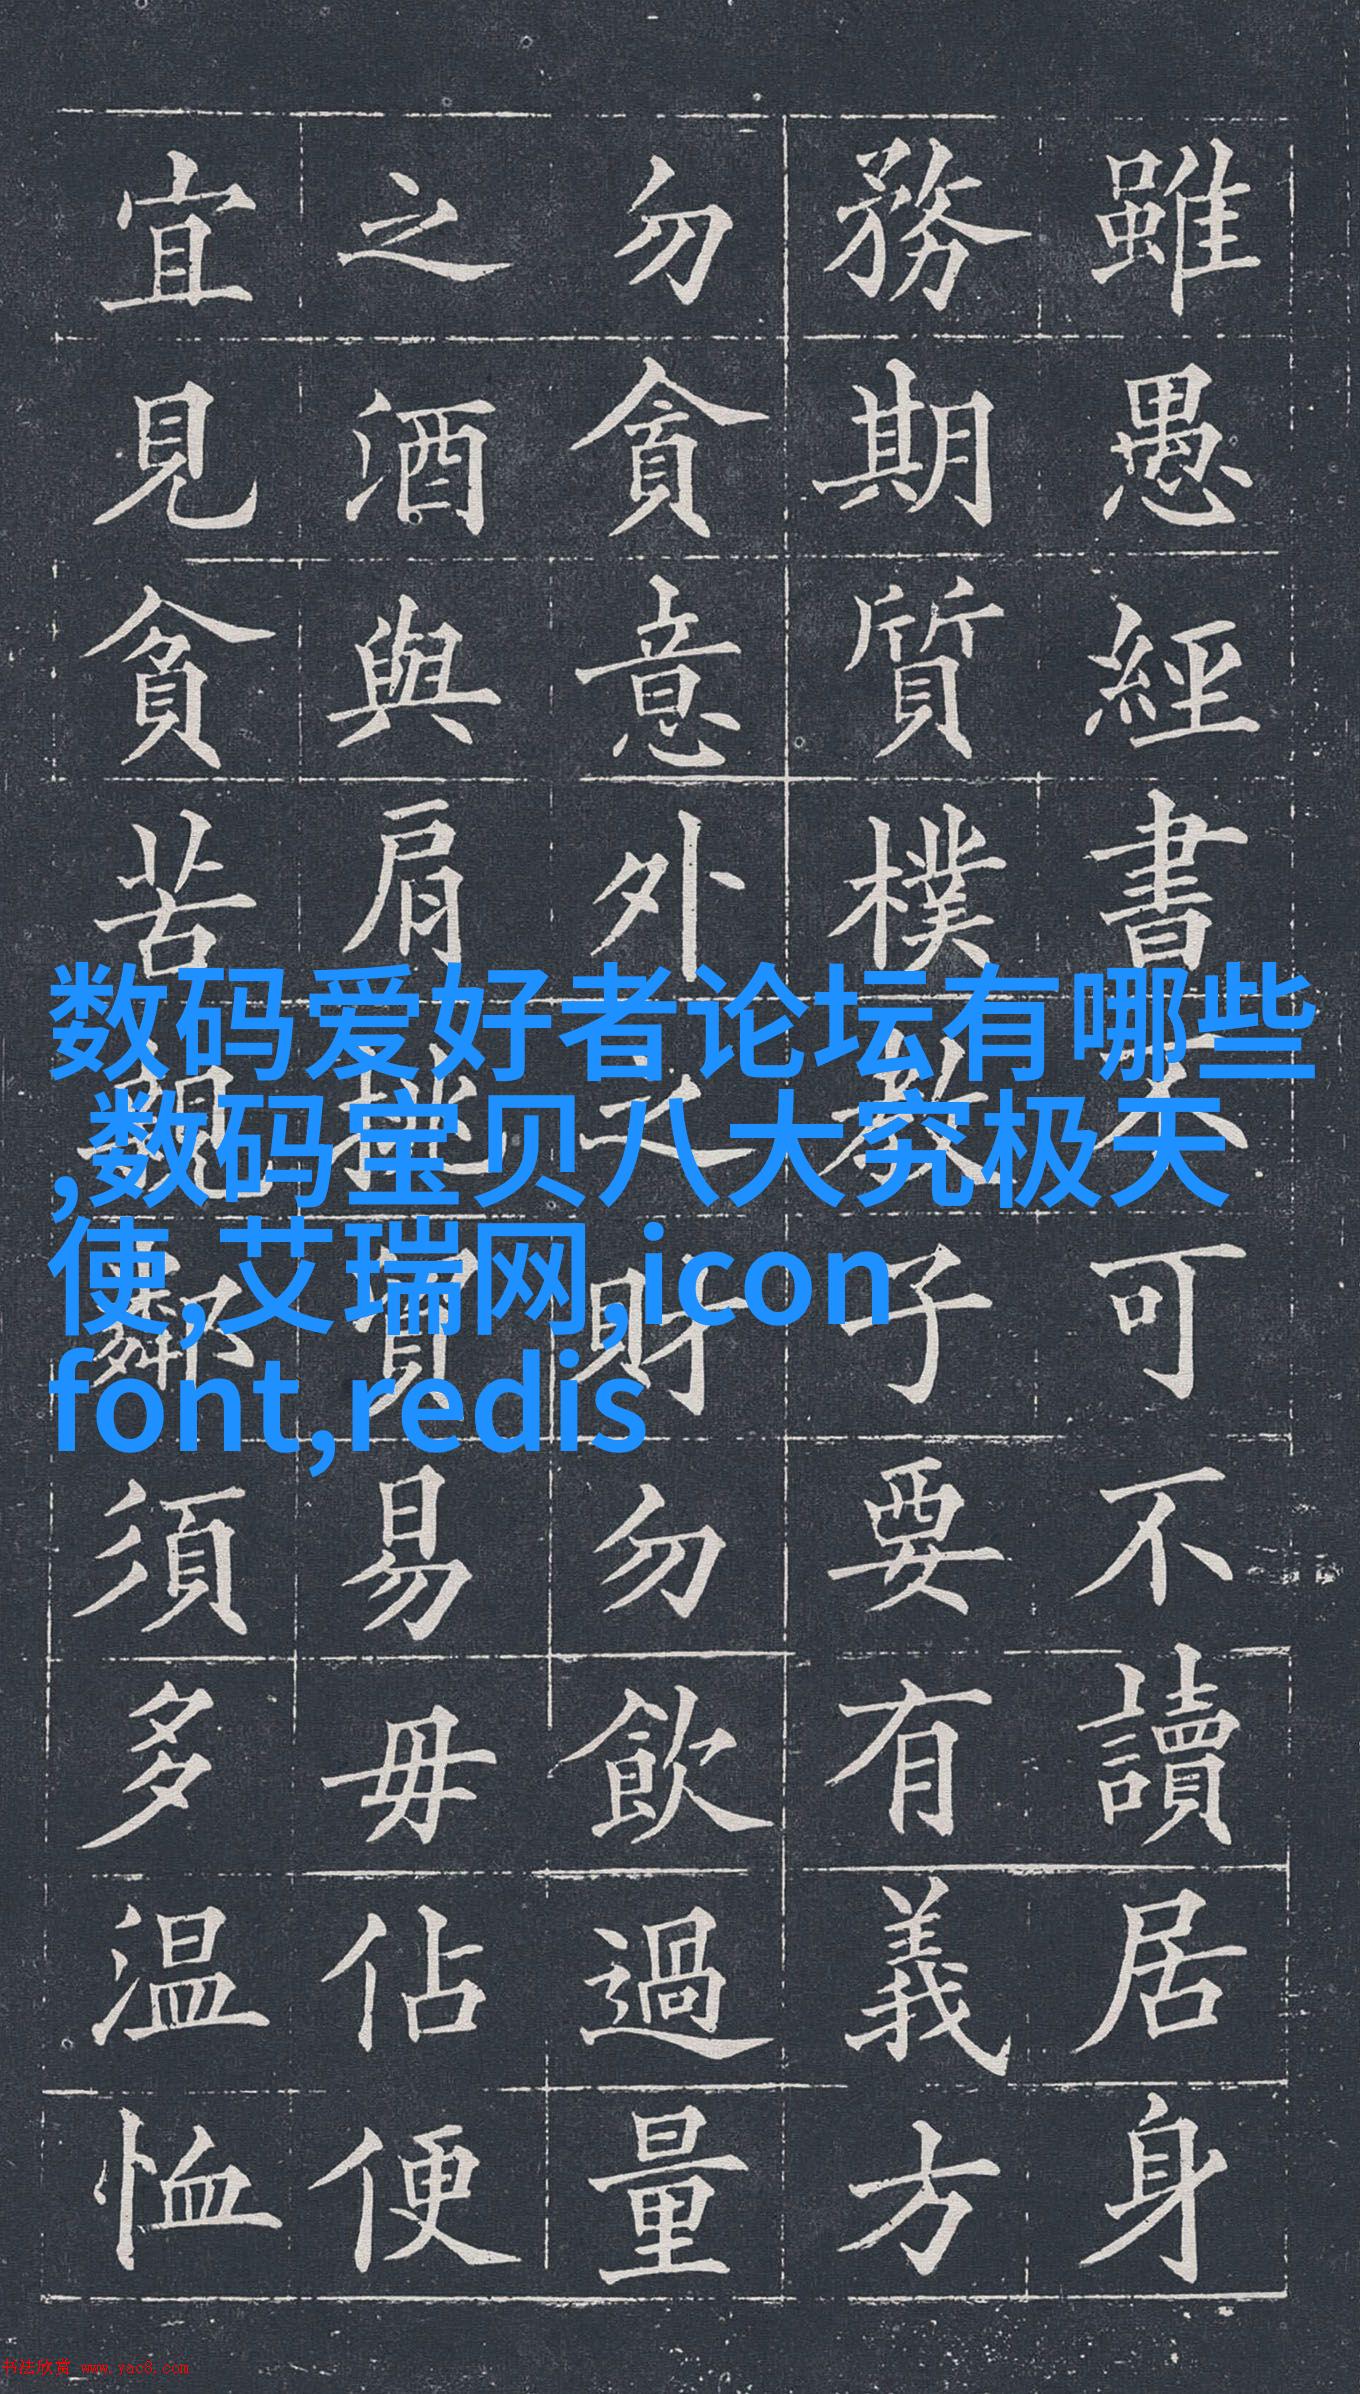 雖愚經書不可不讀居身
務期質樸教子要有義方
勿貪意外之財勿飲過量
之酒與肩挑貿易毋佔便
宜見貧苦親鄰須多温恤
数码爱好者论坛有哪些
,数码宝贝八大究极天
使,艾瑞网,icon
font,redis
书法欣赏 www.yac8.com